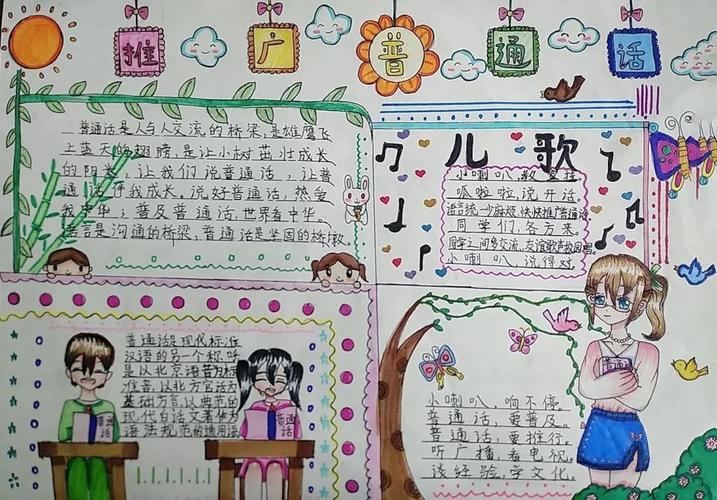 推广普通话
普通话是人与人交流的桥梁,是雄鹰飞
上蓝天的翅膀,是让小树茁壮成长
的阳光,让我们说普通话,让普
通话伴我成长。说好普通话,热爱
我中华;普及普通话,世界看中华。
语言是沟通的桥梁,普通话是坚固的桥墩。
儿歌
小喇叭,
呱啦啦,说开话。
语言统一少麻烦,快快推广普通话
同学们,各方来。
同学之间多交流,友谊歌声校园
小喇叭,说得对,
普通话是现代标准
汉语的另一个称呼
是以北京语音为标
准音,以北方官话为
基础方言,以典范的
现代白话文著作为
语法规范的通用语
普通话
普通话
小喇叭,响不停。
普通话,要普及。
普通话,要推行。
听广播,看电视。
谈经验,学文化。
普通